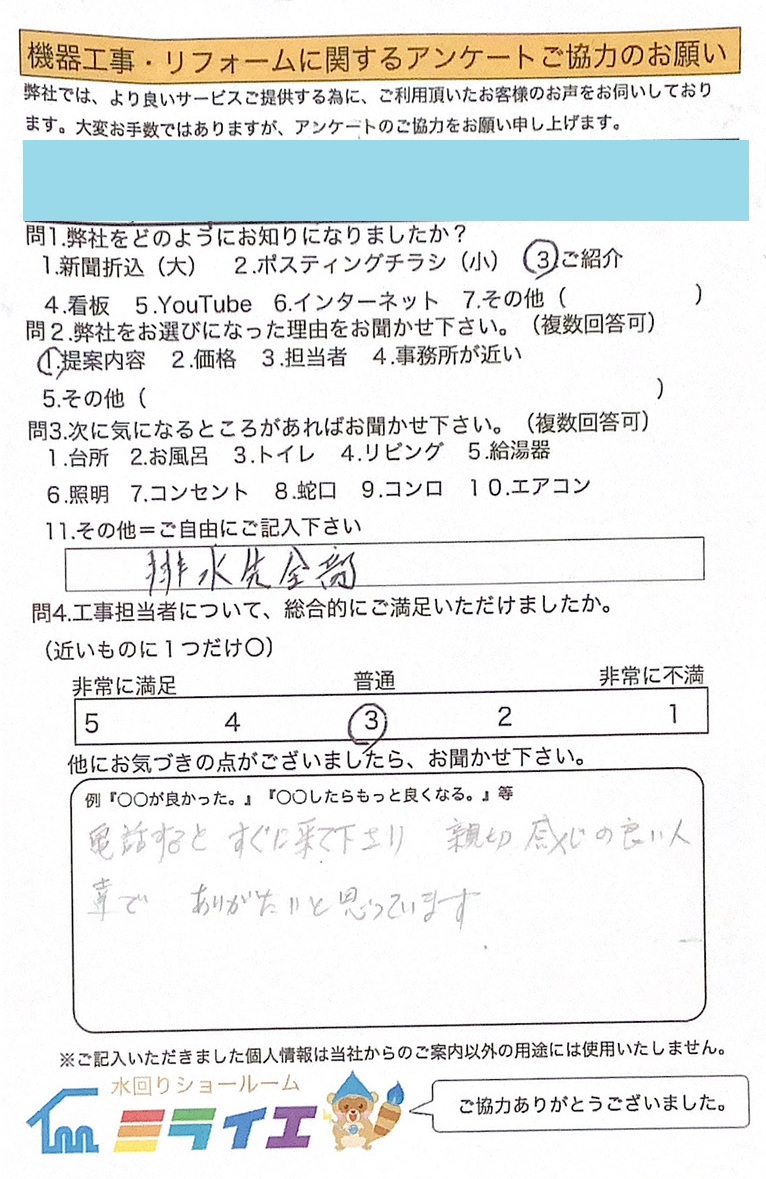 機器工事・リフォームに関するアンケートご協力のお願い
弊社では、より良いサービスご提供する為に、ご利用頂いたお客様のお声をお伺いしており
ます。大変お手数ではありますが、アンケートのご協力をお願い申し上げます。
問1.弊社をどのようにお知りになりましたか?
1.新聞折込(大) 2.ポスティングチラシ(小) 3.ご紹介
4.看板 5.YouTube 6.インターネット 7.その他( )
問2.弊社をお選びになった理由をお聞かせ下さい。(複数回答可)
1.提案内容 2.価格 3.担当者 4.事務所が近い
5.その他( )
問3.次に気になるところがあればお聞かせ下さい。(複数回答可)
1.台所 2.お風呂 3.トイレ 4.リビング 5.給湯器
6.照明 7.コンセント 8.蛇口 9.コンロ 10.エアコン
11.その他=ご自由にご記入下さい
排水先全部
問4.工事担当者について、総合的にご満足いただけましたか。
(近いものに1つだけ〇)
非常に満足 普通 非常に不満
5 4 3 2 1
他にお気づきの点がございましたら、お聞かせ下さい。
例『〇〇が良かった。』『〇〇したらもっと良くなる。』等
電話すると すぐに来て下さり 親切 感じの良い人
で ありがたいと思っています
※ご記入いただきました個人情報は当社からのご案内以外の用途には使用いたしません。
水回りショールーム
ミライエ
ご協力ありがとうございました。